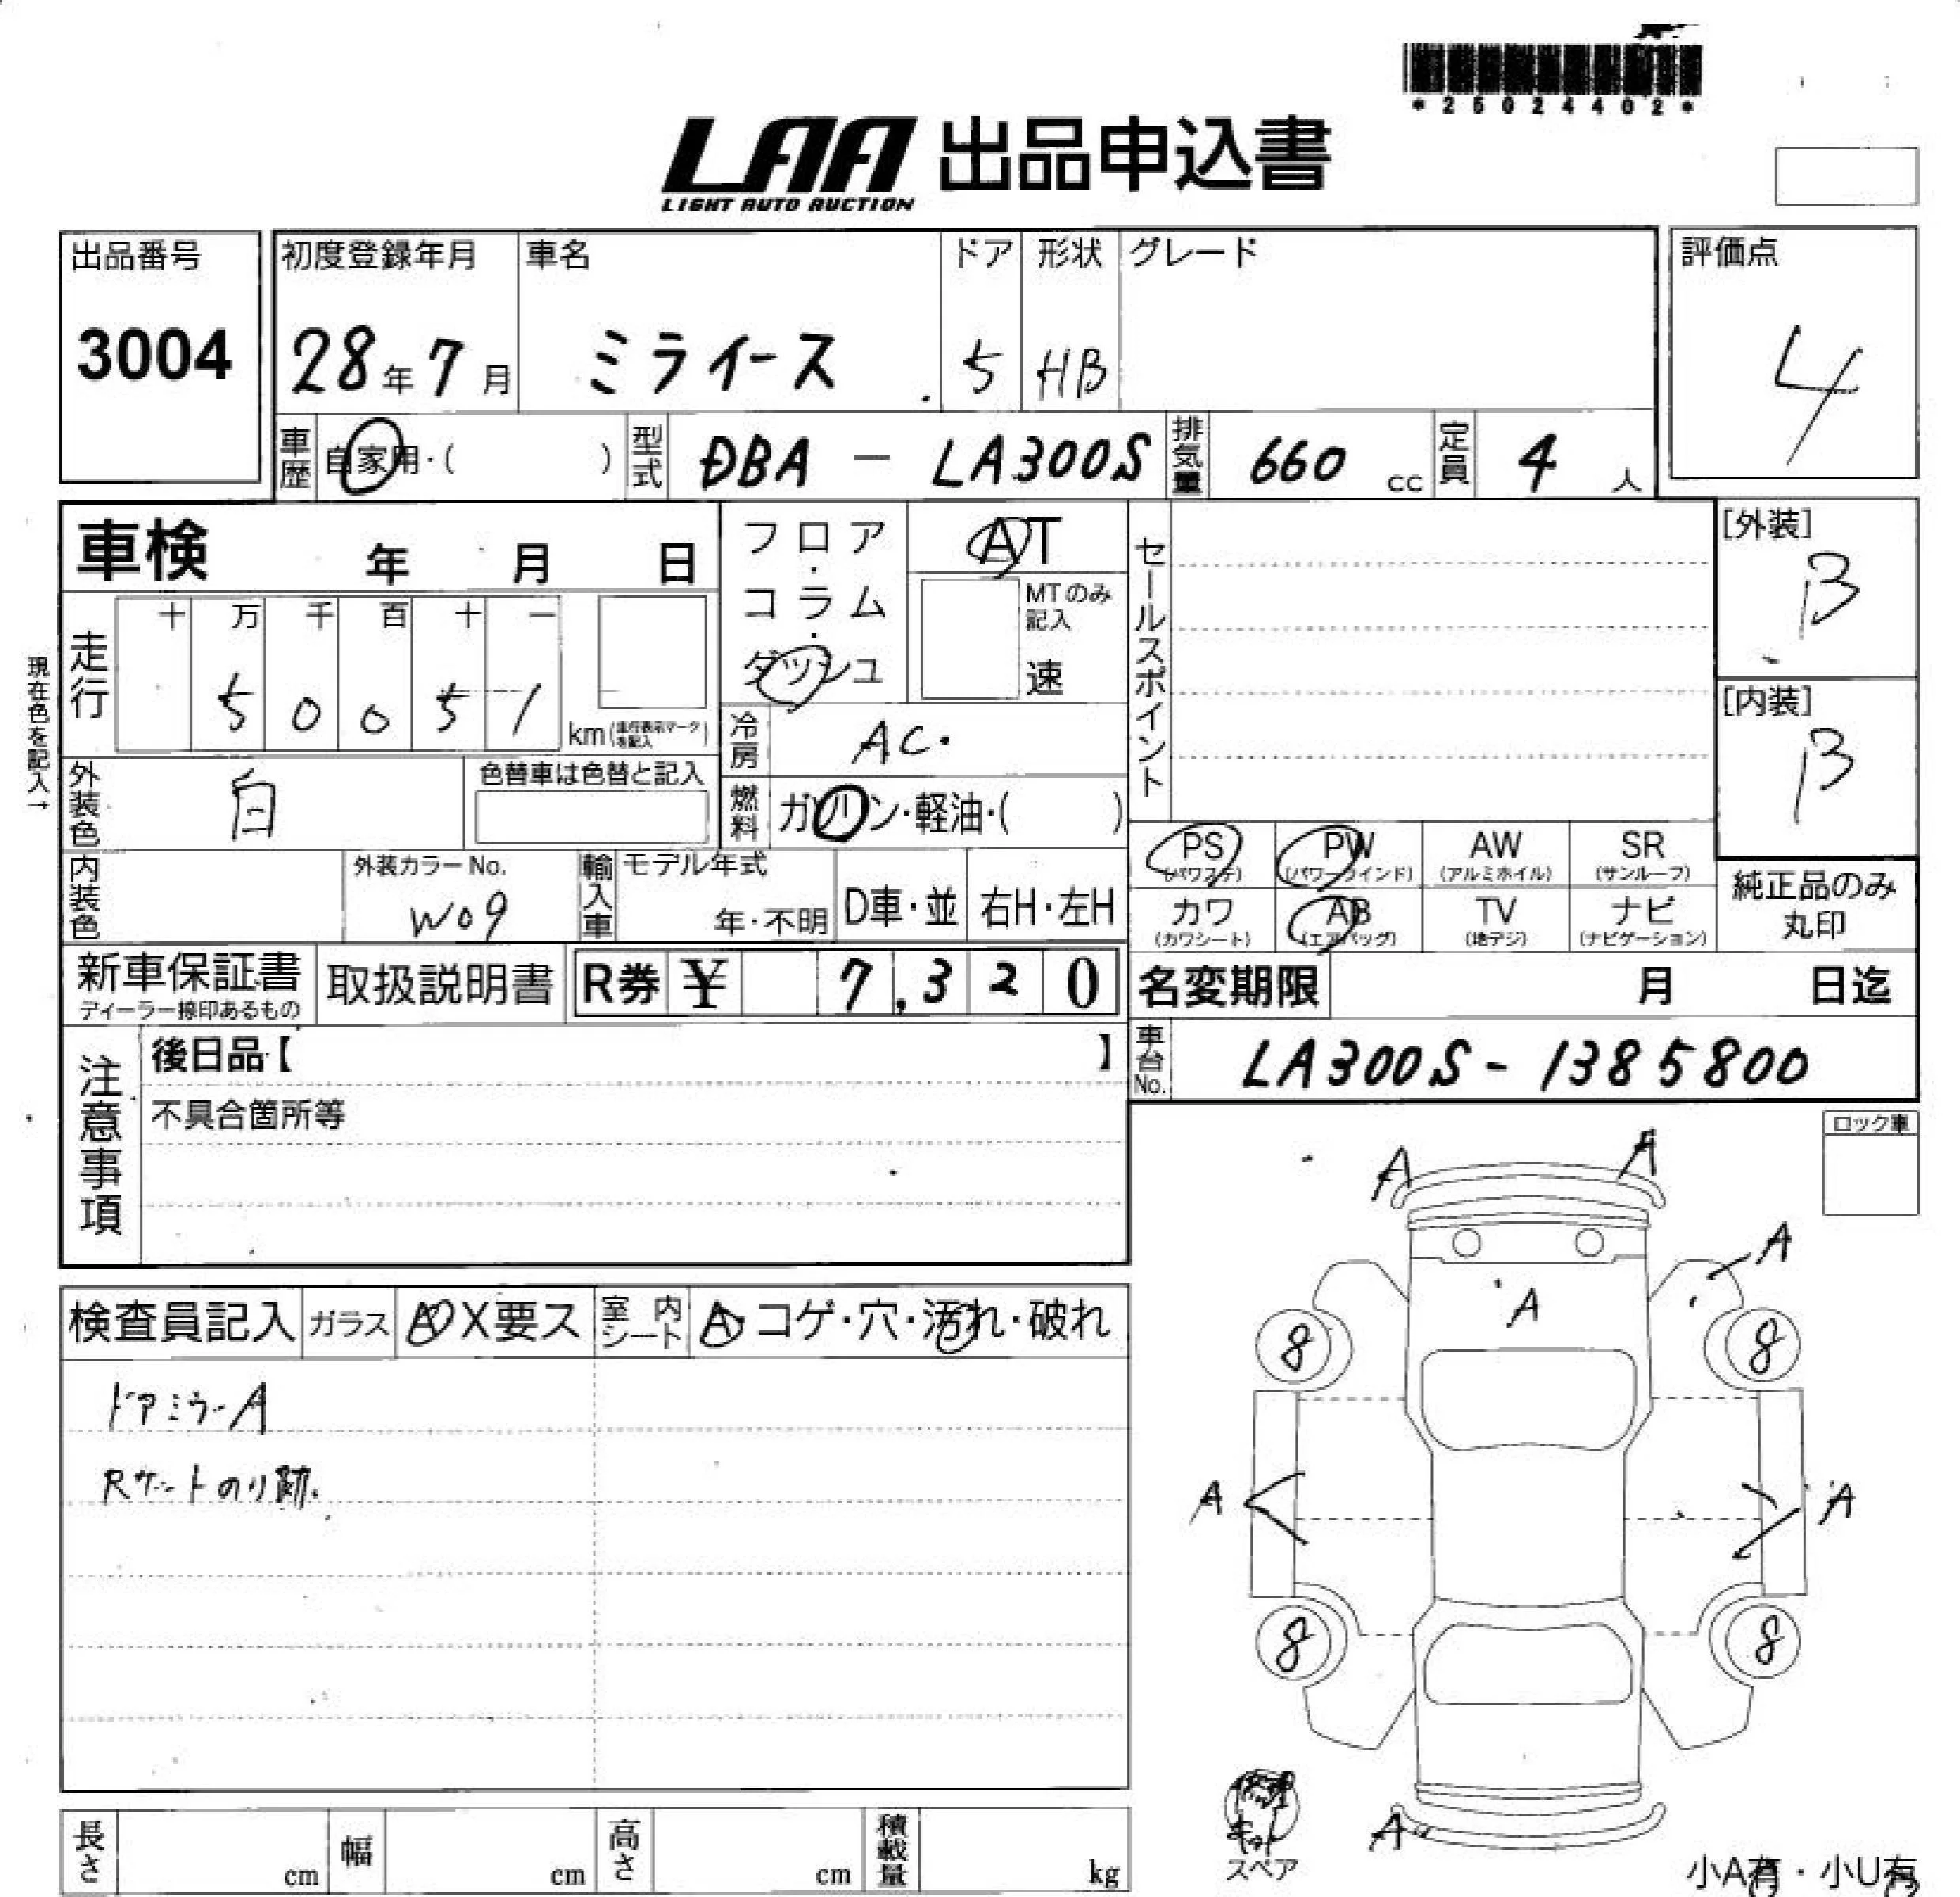 *25024402*
LAA 出品申込書
LIGHT AUTO AUCTION
出品番号 初度登録年月 車名 ドア 形状 グレード 評価点
3004 28年7月 ミライース 5 HB 4
車歴 自家用・( ) 型式 DBA - LA300S 排気量 660 cc 定員 4 人
車検 年 月 日 フロア・コラム・ダッシュ AT セールスポイント [外装]
B
MTのみ記入
速
現在色を記入→
走行 十 万 千 百 十 一
5 0 0 5 1
km(走行表示マークを記入)
[内装]
B
冷房 AC.
外装色 白 色替車は色替と記入 燃料 ガソリン・軽油・( )
PS PW AW SR
(パワステ) (パワーウインド) (アルミホイル) (サンルーフ)
内装色 外装カラーNo. 輸入車 モデル年式
W09 年・不明 D車・並 右H・左H
カワ AB TV ナビ
(カワシート) (エアバッグ) (地デジ) (ナビゲーション)
純正品のみ
丸印
新車保証書 取扱説明書 R券 ¥ 7,320 名変期限 月 日迄
ディーラー捺印あるもの
注意事項 後日品【 】 車台No. LA300S-1385800
不具合箇所等
ロック車
A A
A
A
検査員記入 ガラス A X要ス 室内シート A コゲ・穴・汚れ・破れ
8 8
ドアミラーA
Rゲートのり跡.
A A
8 8
A
スペア
長さ cm 幅 cm 高さ cm 積載量 kg
小A有・小U有